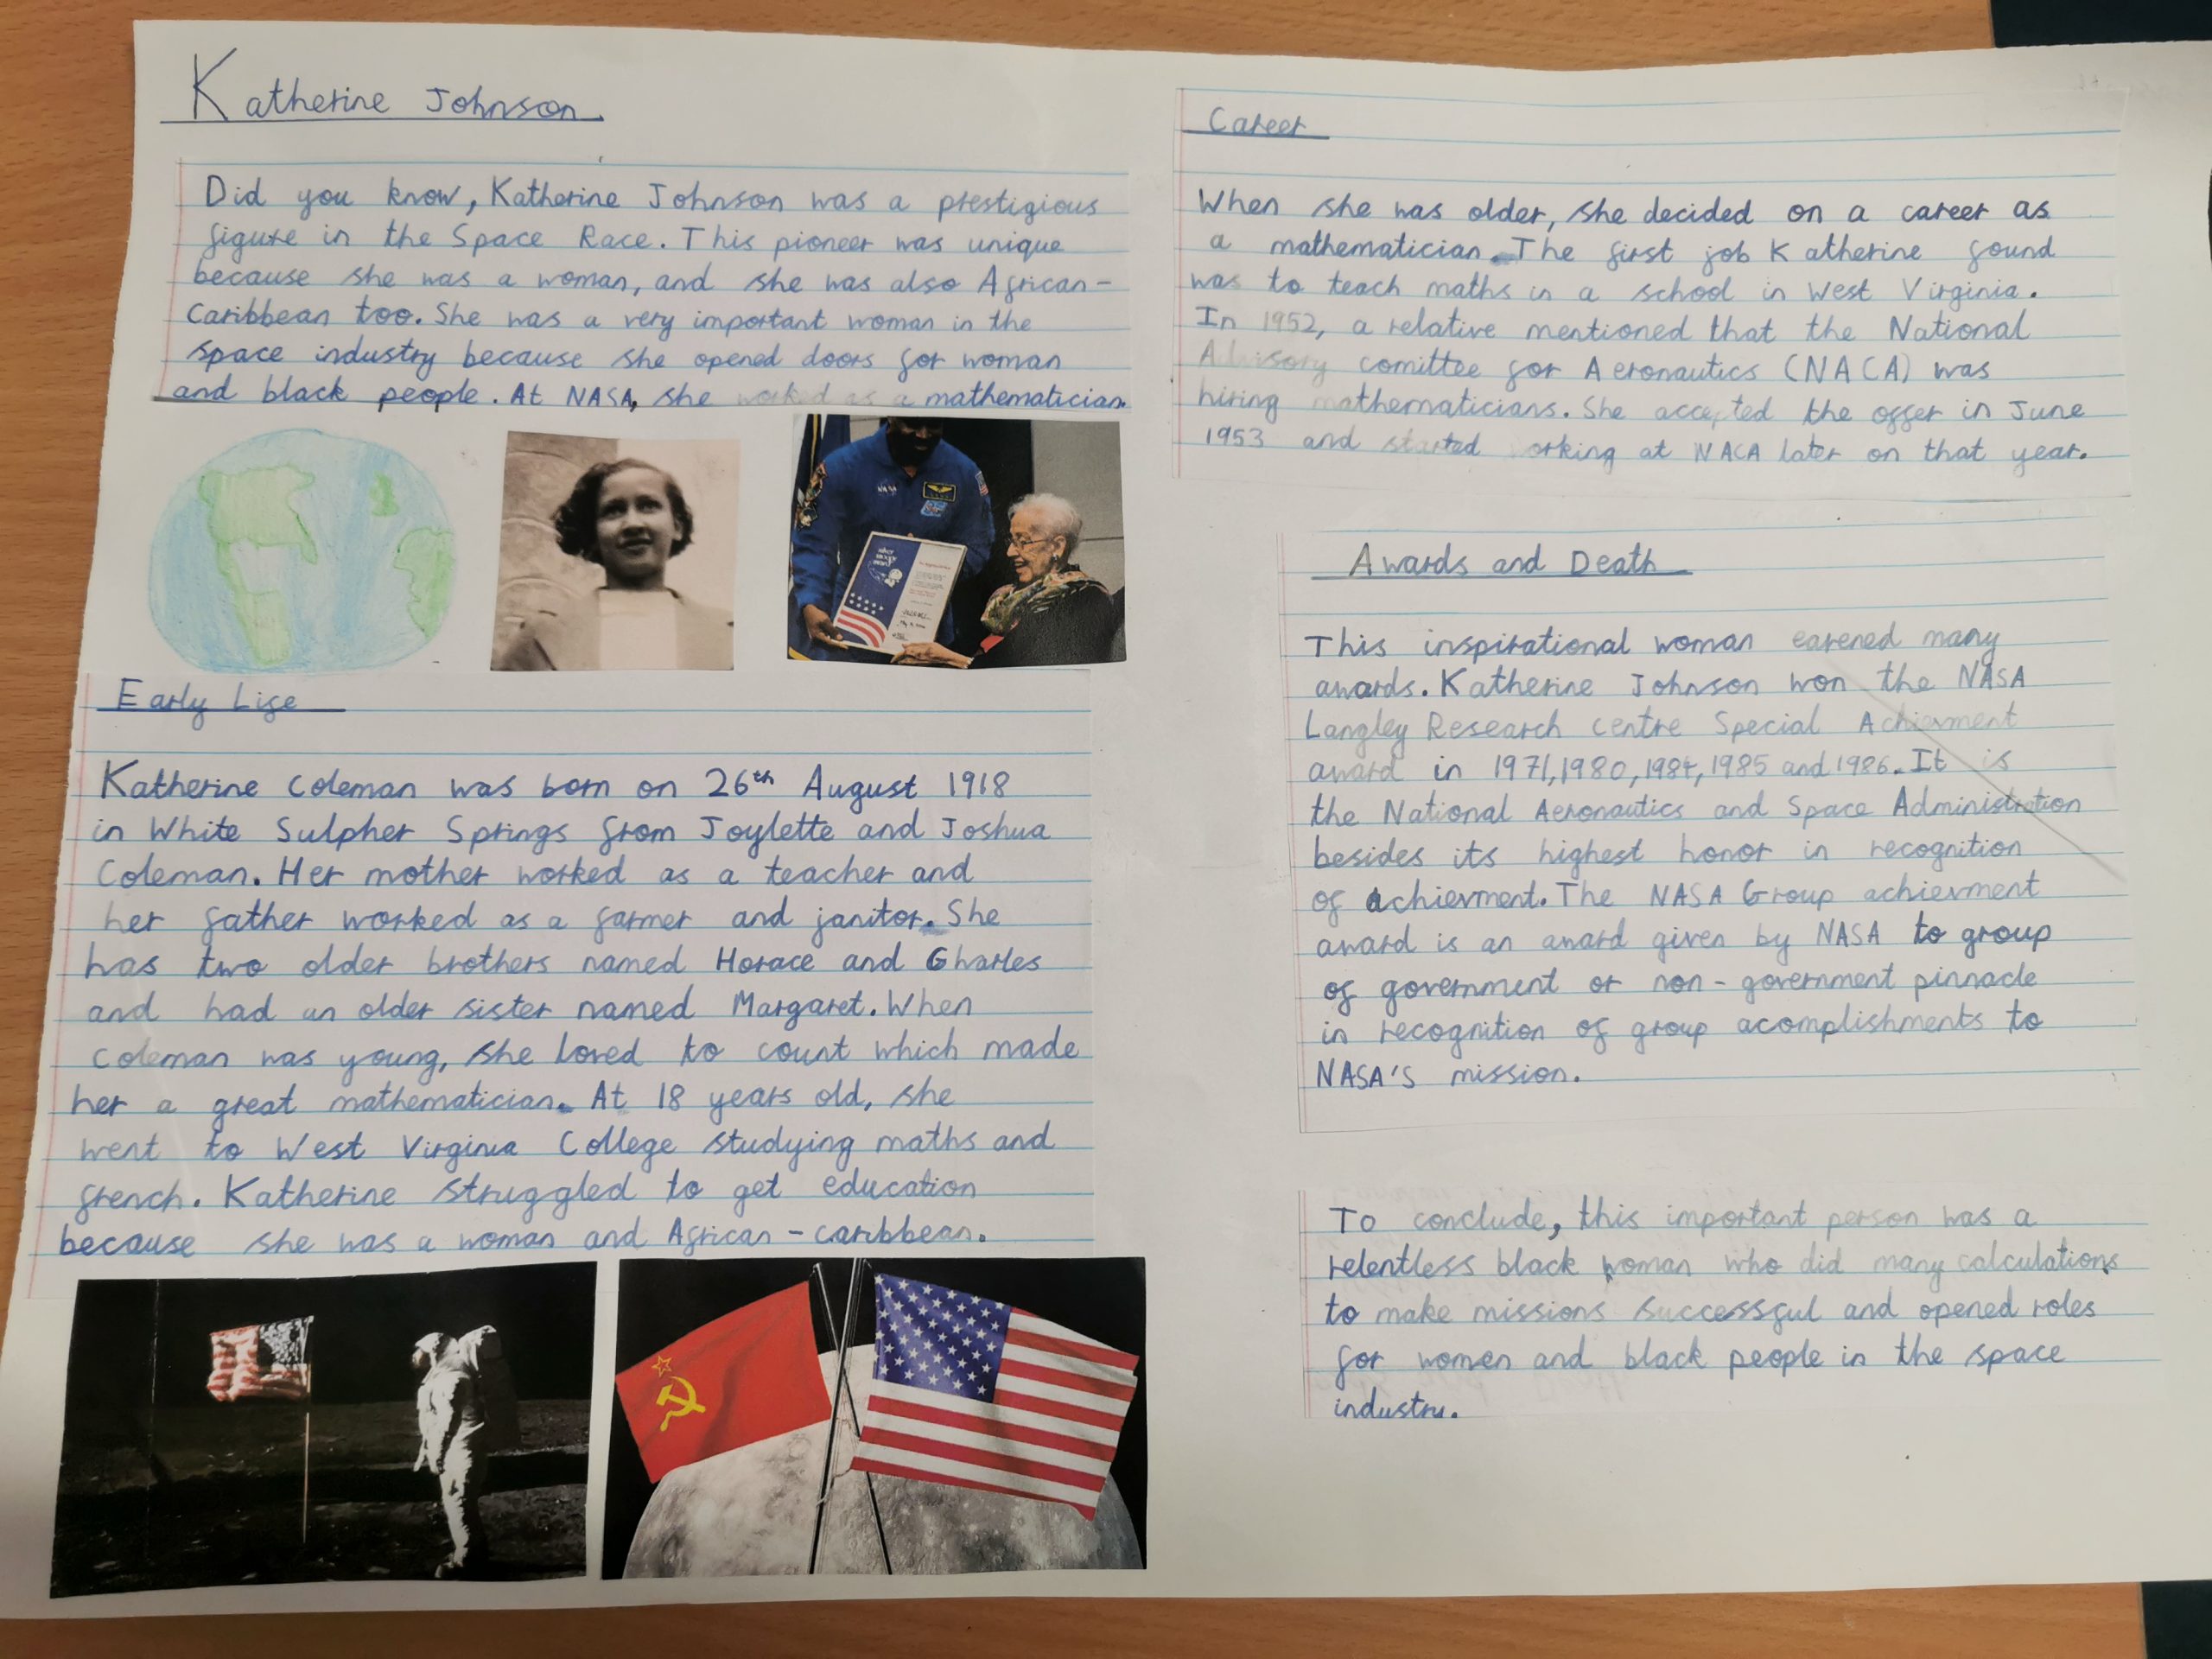 Katherine Johnson
Did you know, Katherine Johnson was a prestigious
figure in the Space Race. This pioneer was unique
because she was a woman, and she was also African-
Caribbean too. She was a very important woman in the
space industry because she opened doors for woman
and black people. At NASA, she worked as a mathematician.
NASA
Early Life
Katherine Coleman was born on 26th August 1918
in White Sulpher Springs from Joylette and Joshua
Coleman. Her mother worked as a teacher and
her father worked as a farmer and janitor. She
has two older brothers named Horace and Charles
and had an older sister named Margaret. When
Coleman was young, she loved to count which made
her a great mathematician. At 18 years old, she
went to West Virginia College studying maths and
french. Katherine struggled to get education
because she was a woman and African-caribbean.
Career
When she was older, she decided on a career as
a mathematician. The first job Katherine found
was to teach maths in a school in West Virginia.
In 1952, a relative mentioned that the National
Advisory comittee for Aeronautics (NACA) was
hiring mathematicians. She accepted the offer in June
1953 and started working at NACA later on that year.
Awards and Death
This inspirational woman earened many
awards. Katherine Johnson won the NASA
Langley Research Centre Special Achievment
award in 1971, 1980, 1984, 1985 and 1986. It is
the National Aeronautics and Space Administration
besides its highest honor in recognition
of achievment. The NASA Group achievment
award is an award given by NASA to group
of government or non-government pinnacle
in recognition of group acomplishments to
NASA'S mission.
To conclude, this important person was a
relentless black woman who did many calculations
to make missions successful and opened roles
for women and black people in the space
industry.